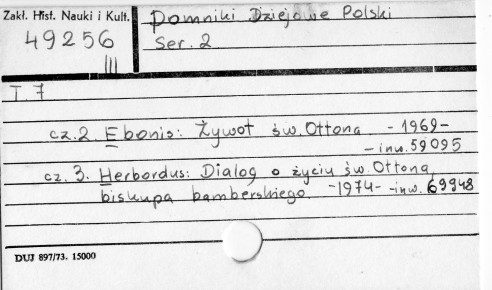 Zakł. Hist. Nauki i Kult.
49256
III
Pomniki Dziejowe Polski
Ser. 2
T. 7
cz. 2. Ebonis: Żywot św. Ottona - 1969 -
- inw. 59095
cz. 3. Herbordus: Dialog o życiu św. Ottona,
biskupa bamberskiego. - 1974 - - inw. 69948
DUJ 897/73. 15000